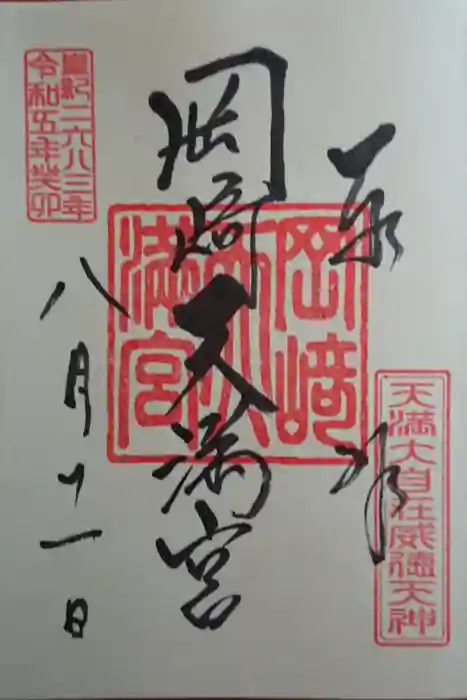 奉拝
天満大自在威徳天神
岡崎天満宮
岡﨑天満宮
八月十一日
皇紀二六八三年
令和五年癸卯